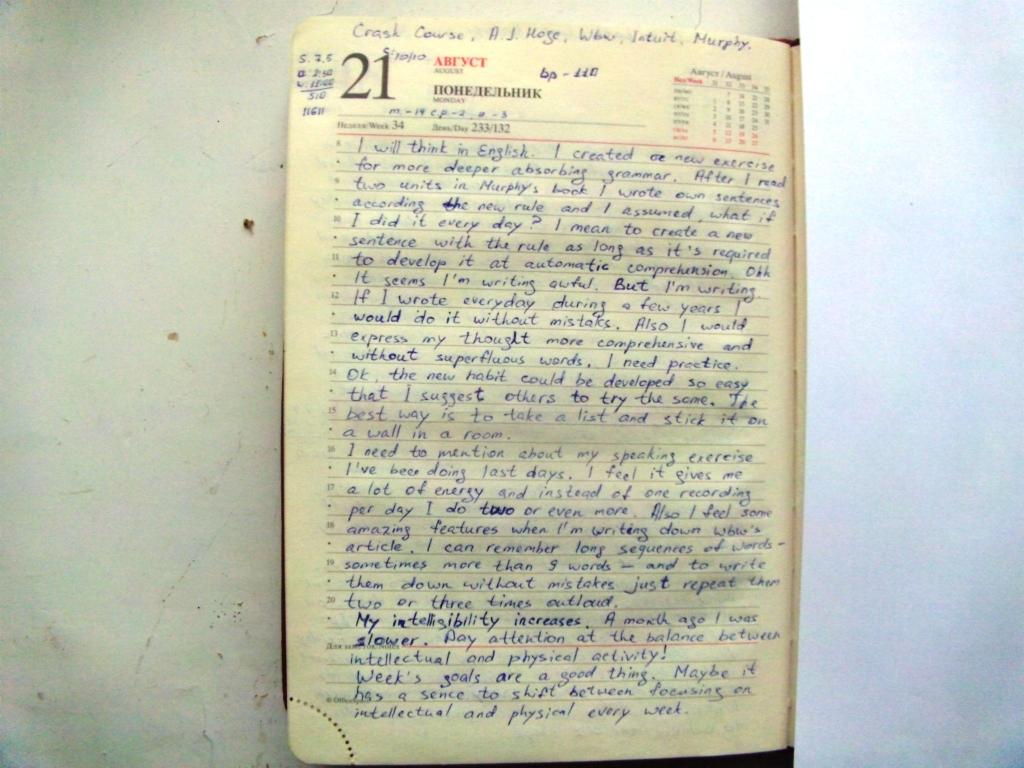 Crash Course, A.J. Hoge, Wbw, Intuit, Murphy.
S. 7,5
5:10/10
21
АВГУСТ
AUGUST
bp - 110
Август / August
ПОНЕДЕЛЬНИК
MONDAY
510
11611
Неделя/Week 34 День/Day 233/132
8 I will think in English. I created new exercise
for more deeper absorbing grammar. After I read
9 two units in Murphy's book I wrote own sentences
according the new rule and I assumed, what if
10 I did it every day? I mean to create a new
sentence with the rule as long as it's required
11 to develop it at automatic comprehension. Ohh
It seems I'm writing awful. But I'm writing.
12 If I wrote everyday during a few years I
would do it without mistaks. Also I would
13 express my thought more comprehensive and
without superfluous words. I need practice.
14 Ok, the new habit could be developed so easy
that I suggest others to try the same. The
15 best way is to take a list and stick it on
a wall in a room.
16 I need to mention about my speaking exercise
I've been doing last days. I feel it gives me
17 a lot of energy and instead of one recording
per day I do two or even more. Also I feel some
18 amazing features when I'm writing down wbw's
article. I can remember long sequences of words -
19 sometimes more than 9 words - and to write
them down without mistakes just repeat them
20 two or three times outloud.
My intelligibility increases. A month ago I was
slower. Pay attention at the balance between
Для заметок/Notes
intellectual and physical activity!
Week's goals are a good thing. Maybe it
has a sence to shift between focusing on
intellectual and physical every week.